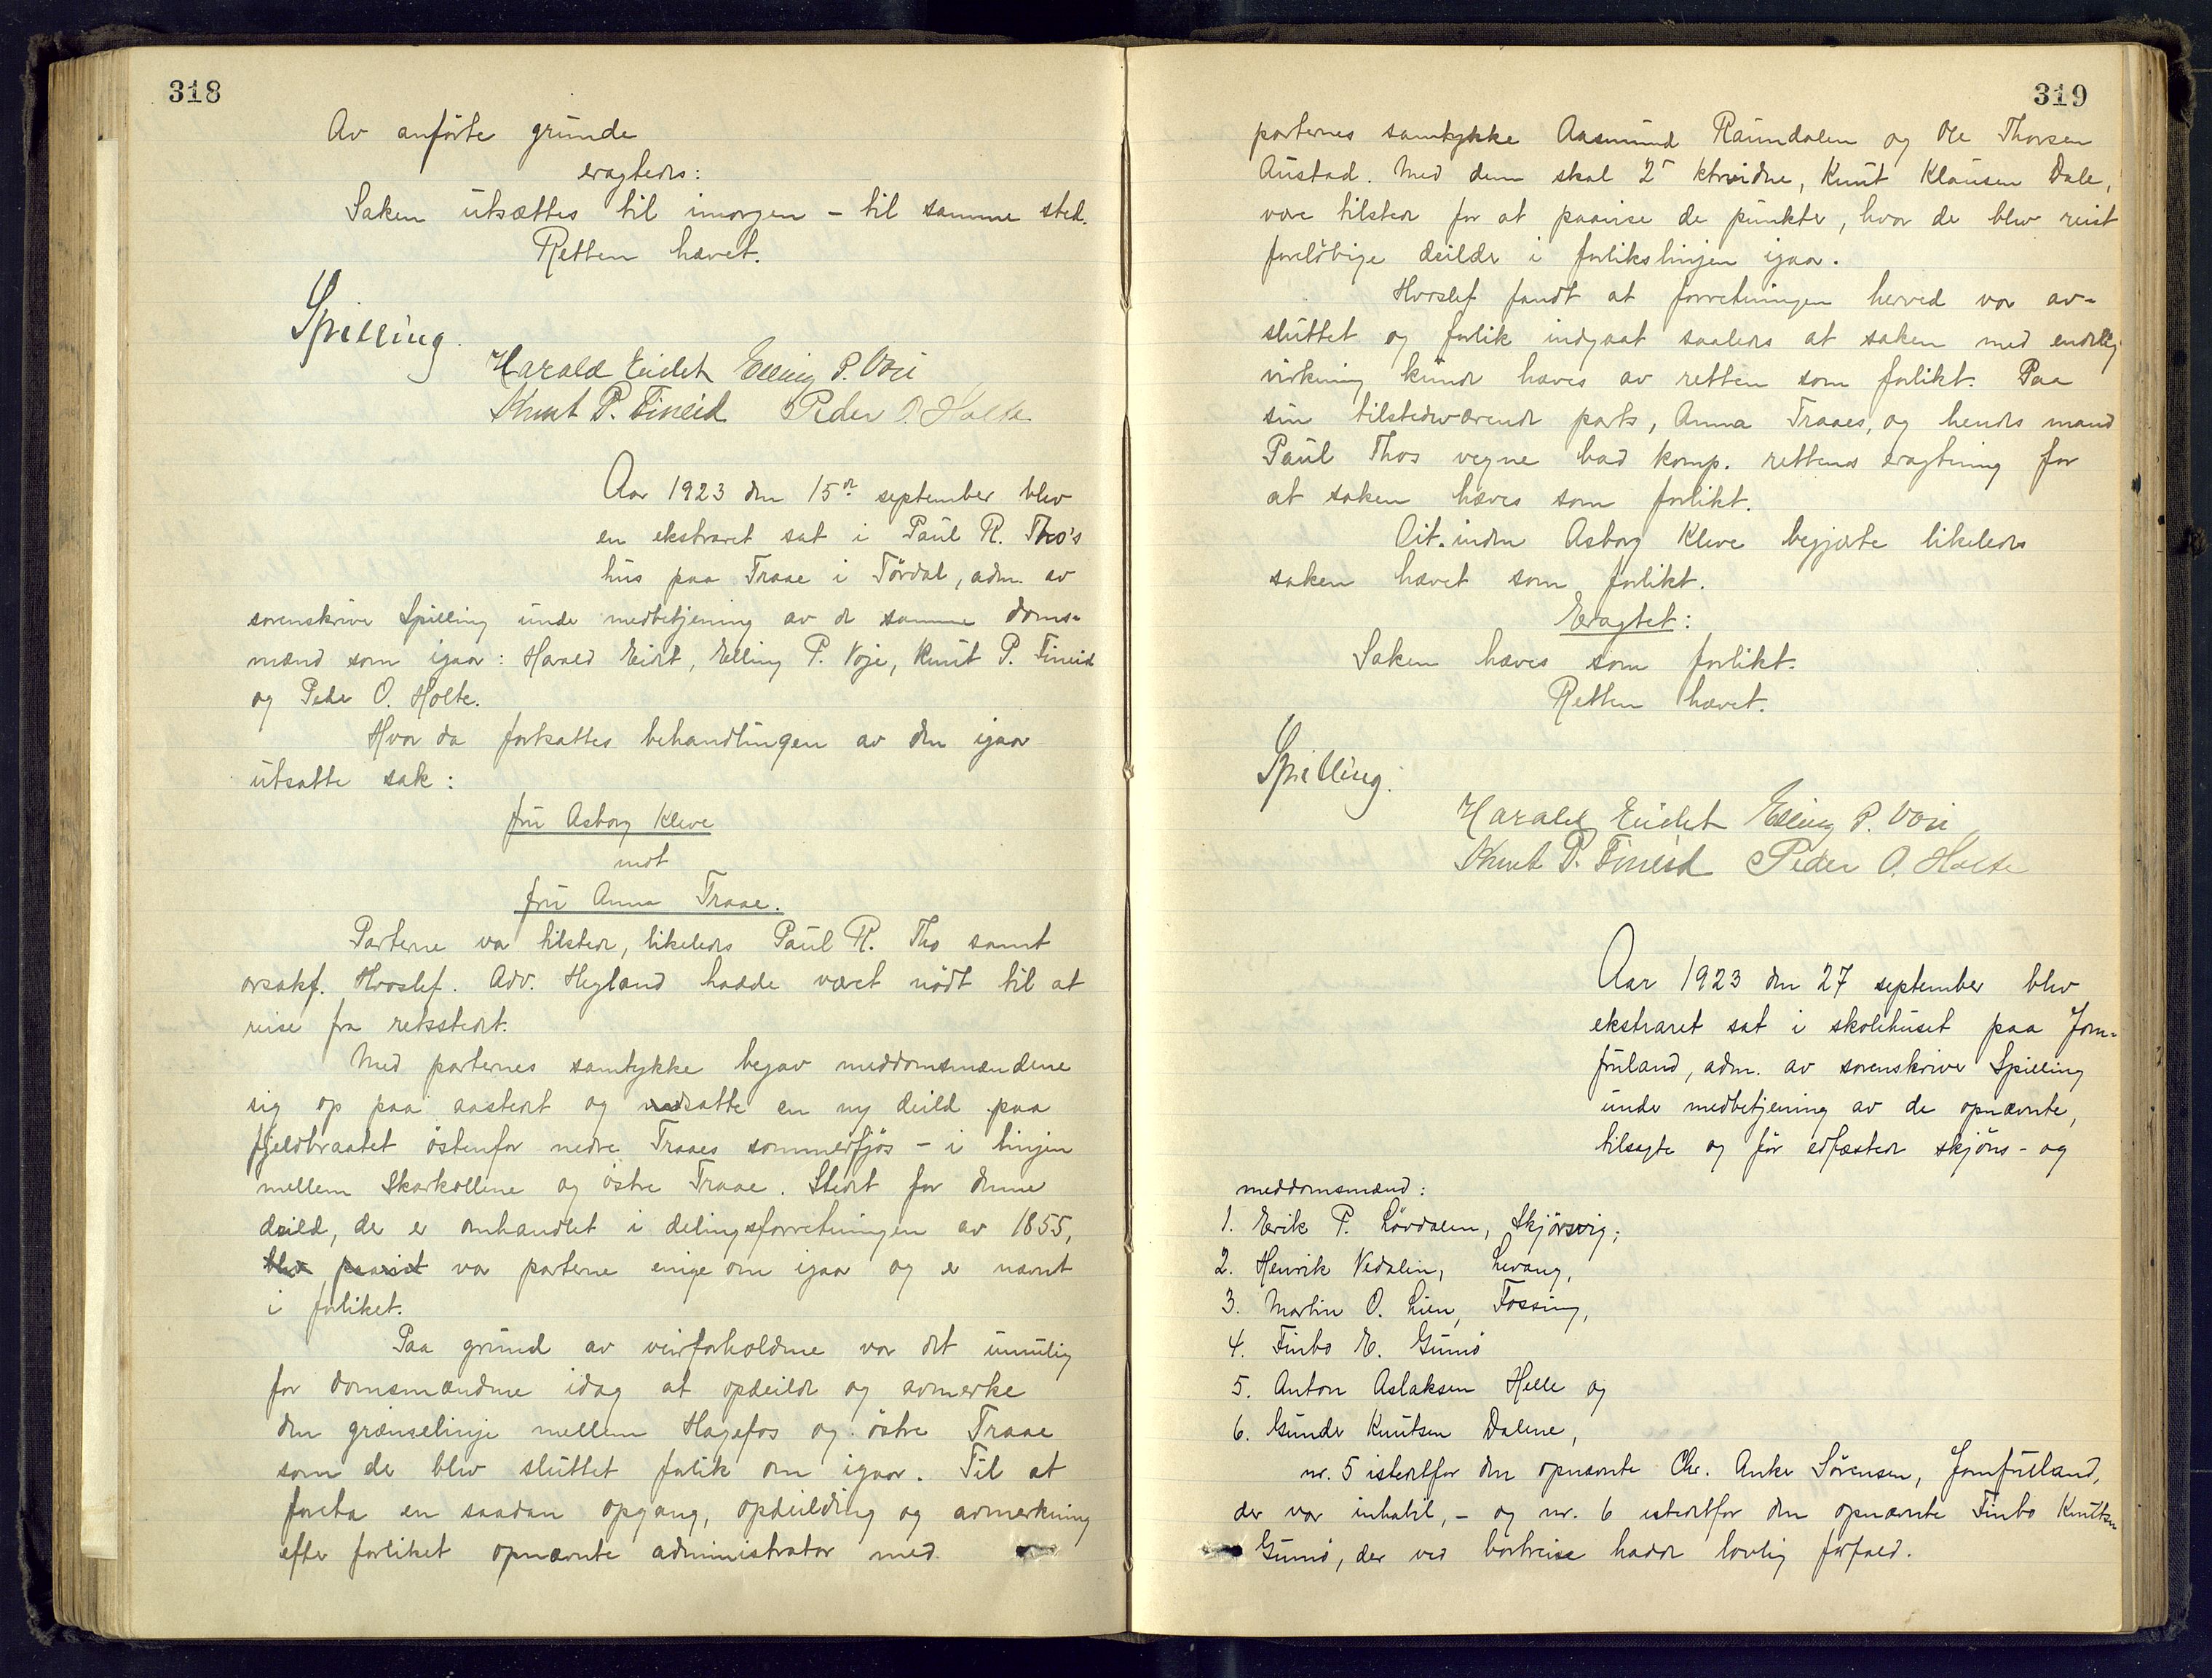 318
Av anførte grunde
eragtedes:
Saken utsættes til imorgen - til samme sted.
Retten hævet.
Spilling.
Harald Eidet Elling P. Voie
Knut P. Fineid Peder O. Holte
Aar 1923 den 15de september blev
en ekstraret sat i Paul R. Tho's
hus paa Traae i Tørdal, adm. av
sorenskriver Spilling under medbetjening av de samme doms-
mænd som igaar: Harald Eidet, Elling P. Voje, Knut P. Fineid
og Peder O. Holte.
Hvor da fortsattes behandlingen av den igaar
utsatte sak:
fru Asborg Kleve
mot
fru Anna Traae.
Parterne var tilstede, likeledes Paul R. Tho samt
orsakf. Hvoslef. Adv. Heyland hadde været nødt til at
reise fra retsstedet.
Med parternes samtykke begav meddomsmændene
sig op paa aastedet og nedsatte en ny deild paa
fjeldbraatet østenfor nedre Traaes sommerfjøs - i linjen
mellem Skarkollene og østre Traae. Stedet for denne
deild, der er omhandlet i delingsforretningen av 1855,
blev paavist var parterne enige om igaar og er nævnt
i forliket.
Paa grund av veirforholdene var det umulig
for domsmændene idag at opdeilde og avmerke
den grænselinje mellem Hagefos og østre Traae
som der blev sluttet forlik om igaar. Til at
foreta en saadan opgang, opdeilding og avmerkning
efter forliket opnævnte administrator med
319
parternes samtykke Aasmund Raundalen og Ole Thorsen
Austad. Med dem skal retsvidne, Knut Klausen Dale,
være tilstede for at paavise de punkter, hvor de blev reist
foreløbige deilder i forlikslinjen igaar.
Hvoslef fandt at forretningen herved var av-
sluttet og forlik indgaat saaledes at saken med endelig
virkning kunde hæves av retten som forlikt. Paa
sin tilstedeværende parts, Anna Traaes, og hendes mand
Paul Thos vegne bad komp. rettens eragtning for
at saken hæves som forlikt.
Citantinden Asborg Kleve begjærte likeledes
saken hævet som forlikt.
Eragtet:
Saken hæves som forlikt.
Retten hævet.
Spilling.
Harald Eidet Elling P. Voie
Knut P. Fineid Peder O. Holte
Aar 1923 den 27 september blev
ekstraret sat i skolehuset paa Jom-
fruland, adm. av sorenskriver Spilling
under medbetjening av de opnævnte,
tilsagte og før edfæstede skjøns- og
meddomsmænd:
1. Erik P. Løvdalen, Skjørsvig;
2. Henrik Vedalen, Levang,
3. Martin O. Lien, Fossing,
4. Finbo E. Gumø
5. Anton Aslaksen Helle og
6. Gunder Knutsen Dalene,
nr. 5 istedetfor den opnævnte Chr. Anker Sørensen, Jomfruland,
der var inhabil, - og nr. 6 istedetfor den opnævnte Finbo Knutsen
Gumø, der ved bortreise hadde lovlig forfald.